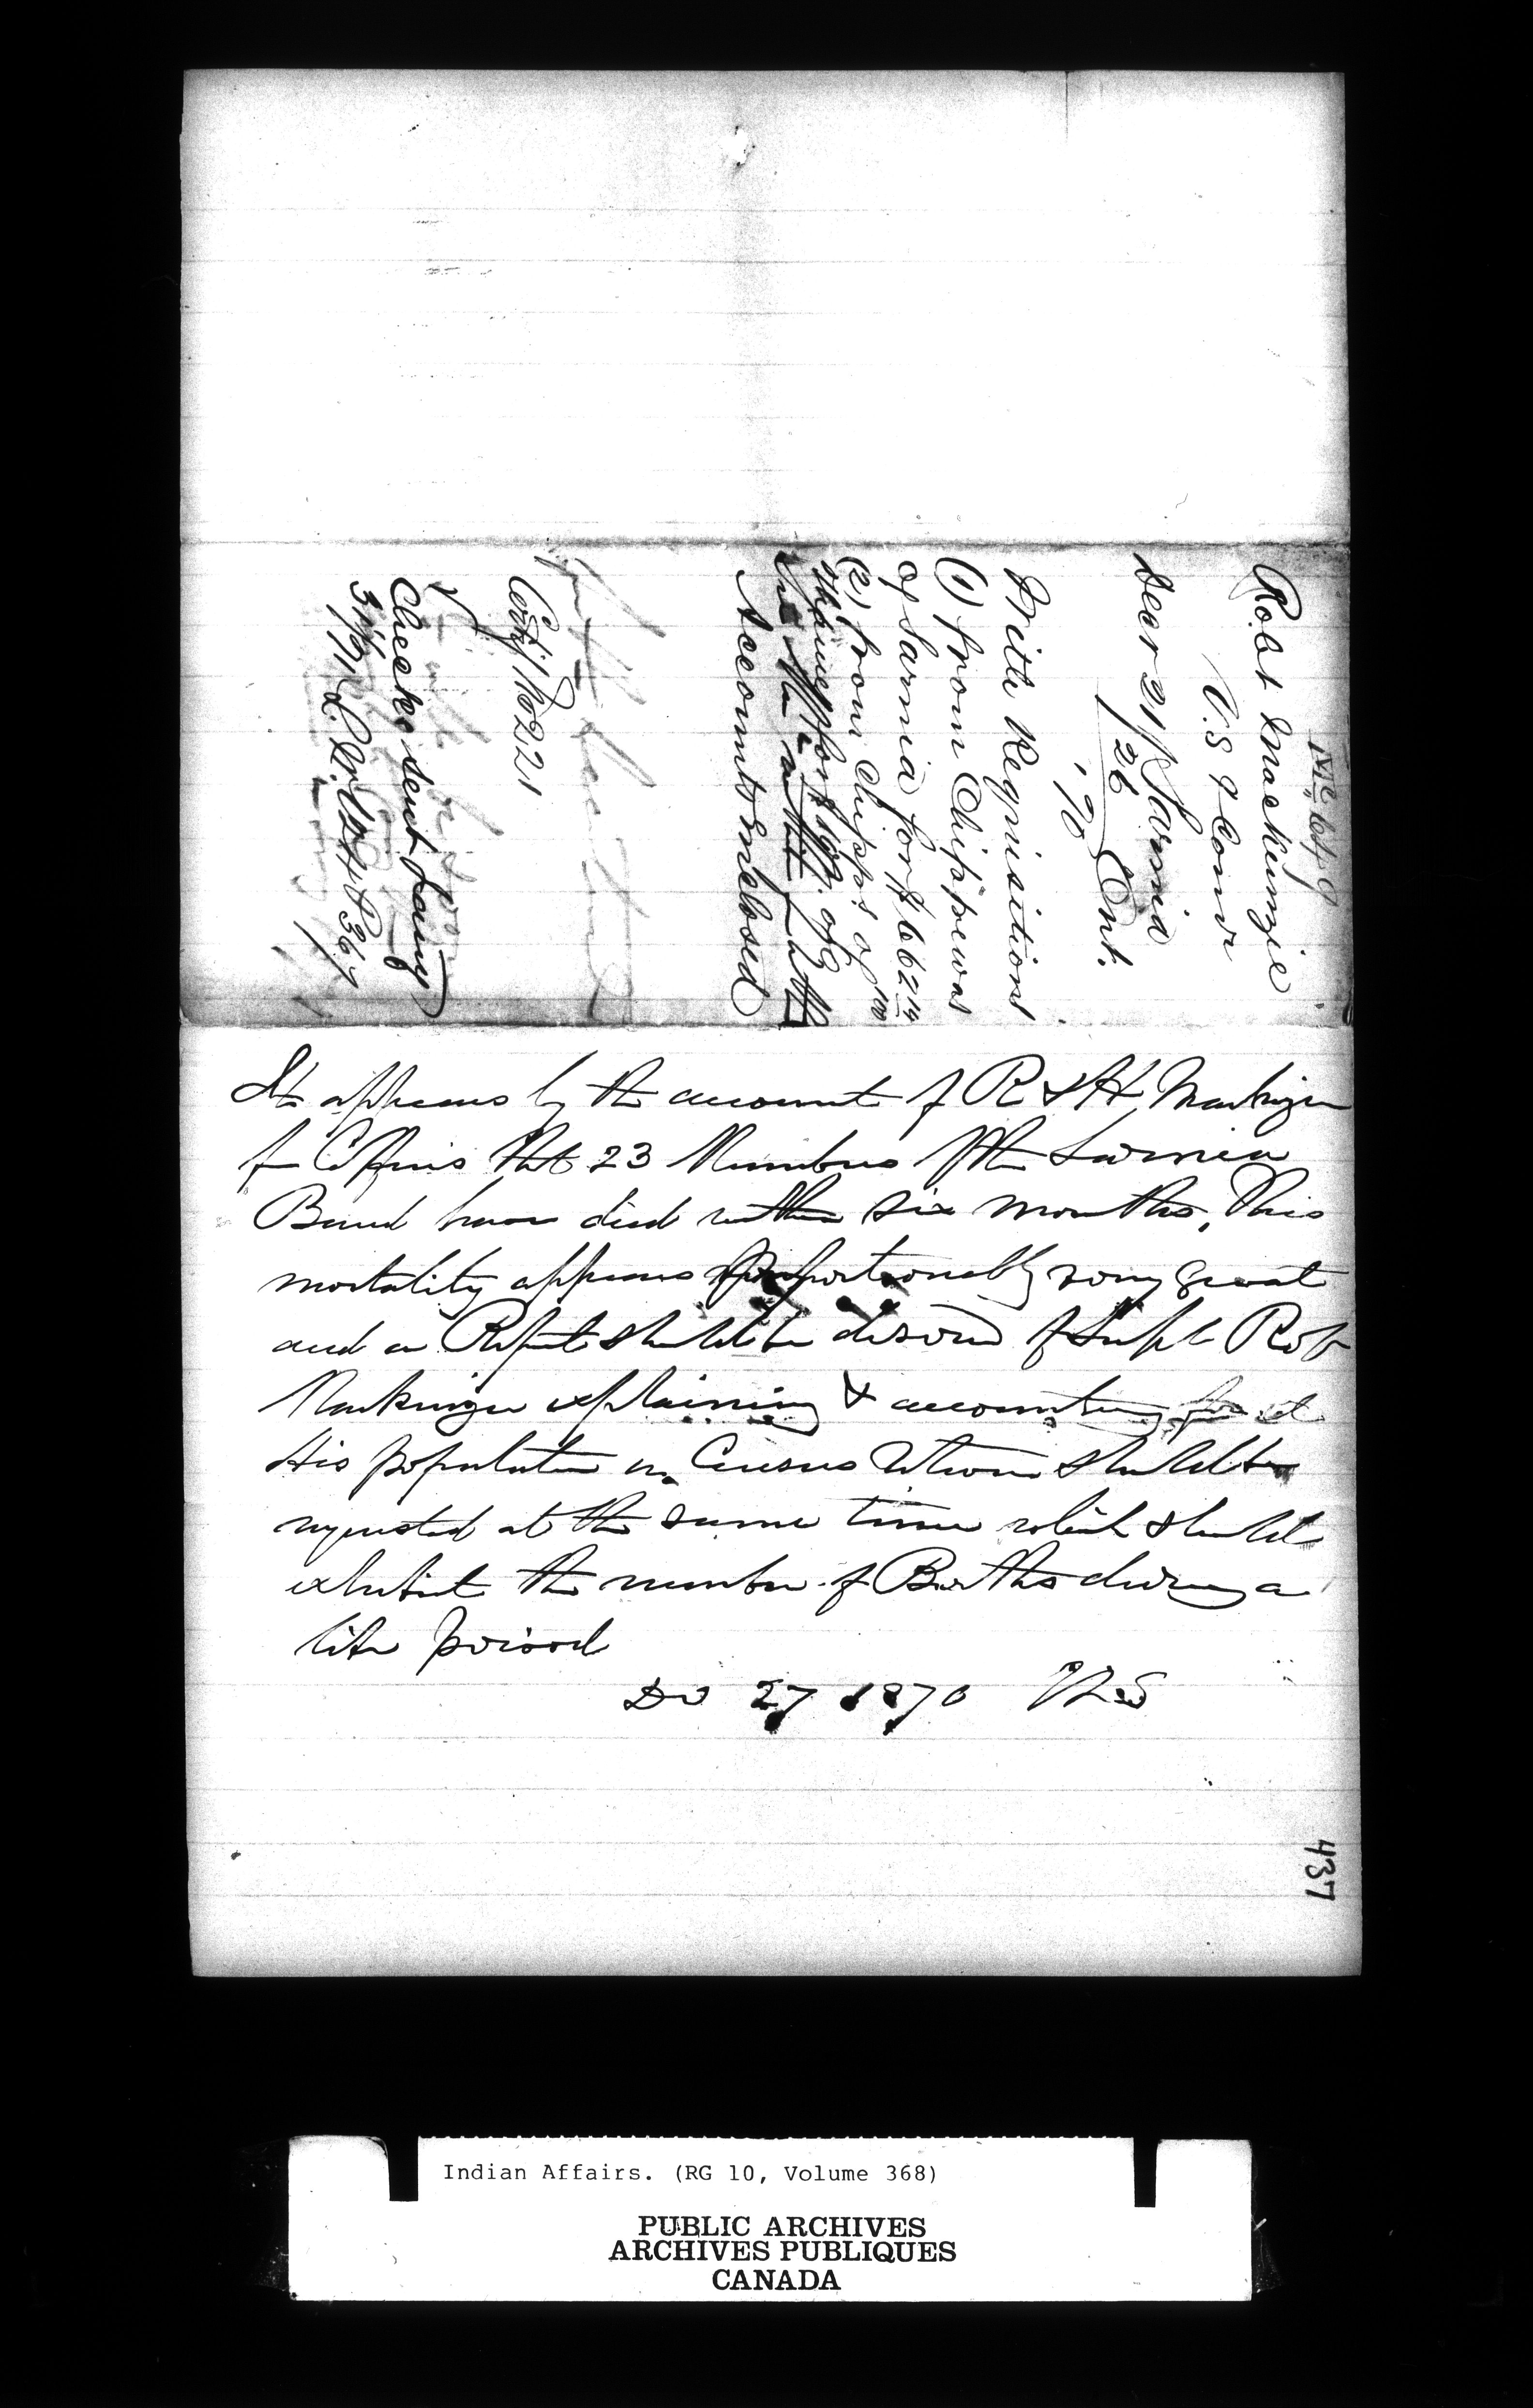 No 649
Robt Mackenzie
V.S & Comr
Decr 21/26 Sarnia
'70 Ont.
With Requisitions
(1) from Chippewas
of Sarnia for $662 14/
(2) from Chipps of
for $
Accounts Enclosed
Certf No 221
Checks sent
31/1/71 L.
It appears by the account of R & H Mackenzie
for Coffins that 23 Members of the Sarnia
Band have died within six months, This
mortality appears proportionably very great
and a Report should be desired of Supt Rob
Mackenzie explaining & accounting for it
His population or Census Return should be
requested at the same time which should
exhibit the number of Births during a
like period
De 27 1870
437
Indian Affairs. (RG 10, Volume 368)
PUBLIC ARCHIVES
ARCHIVES PUBLIQUES
CANADA